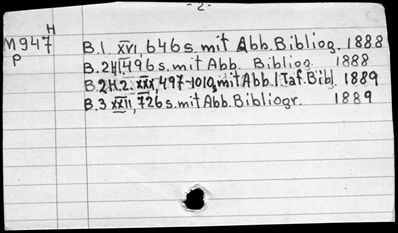 -2-
H
M947
P
B.1. XVI, 646 s. mit Abb. Bibliog. 1888
B.2H1, 496 s. mit Abb. Bibliog. 1888
B.2H.2: XXX, 497-1010 s. mit Abb. 1 Taf. Bibl. 1889
B.3 XXII, 726 s. mit Abb. Bibliogr. 1889